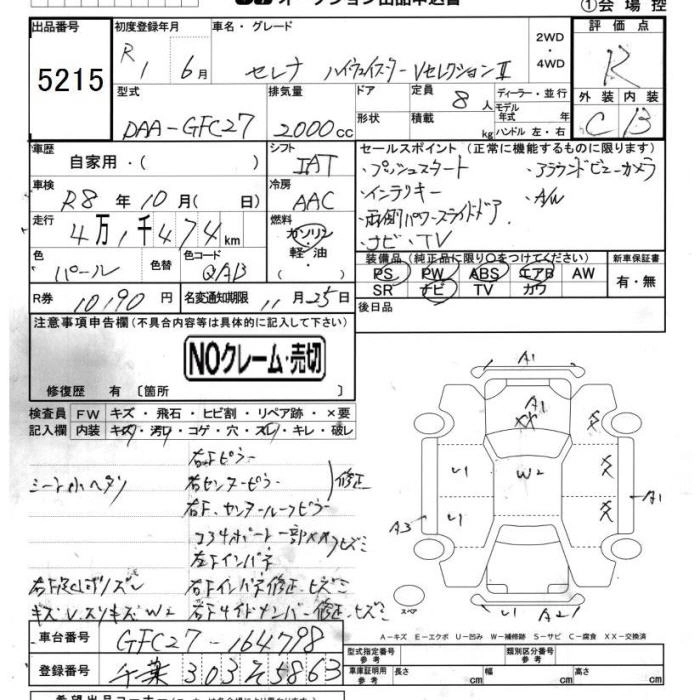 オークション出品申込書
①会場控
出品番号 初度登録年月 車名・グレード 2WD・4WD 評価点
5215 R1 6月 セレナ ハイウェイスターVセレクションⅡ R
型式 排気量 ドア 定員 8人 ディーラー・並行 外装 内装
DAA-GFC27 2000cc 形状 積載 kg モデル年式 年 ハンドル 左・右 C B
車歴 自家用・( ) シフト IAT セールスポイント (正常に機能するものに限ります)
・プッシュスタート ・アラウンドビューカメラ
車検 R8年10月( 日) 冷房 AAC ・インテリキー ・A/W
走行 4万1千474km 燃料 ガソリン 軽油 ・( ) ・両側パワースライドドア
・ナビ・TV
色 パール 色替 色コード QAB 装備品 (純正品に限り○をつけてください) 新車保証書
PS PW ABS エアB AW 有・無
SR ナビ TV カワ
R券 10190円 名変通知期限 11月25日 後日品
注意事項申告欄(不具合内容等は具体的に記入して下さい)
NOクレーム・売切
修復歴 有 〔箇所 〕
検査員 FW キズ・飛石・ヒビ割・リペア跡・×要
記入欄 内装 キズ・汚レ・コゲ・穴・スレ・キレ・破レ
右Fピラー
シート小ヘタリ 右センターピラー 修正
右F、センタールーフピラー
コアサポート一部XX ヒズミ
左Fインパネ
右Fインパネ修正、ヒズミ
キズV.スリキズW2 右Fサイドメンバー修正、ヒズミ
A1
A1
XX
X
U1 W2 X
A1
A3 U1 X
スペア
U1 A2
A-キズ E-エクボ U-凹み W-補修跡 S-サビ C-腐食 XX-交換済
車台番号 GFC27-164798 型式指定番号 参考 類別区分番号 参考
登録番号 千葉 303 そ 5863 車庫証明用 参考 長さ cm 幅 cm 高さ cm